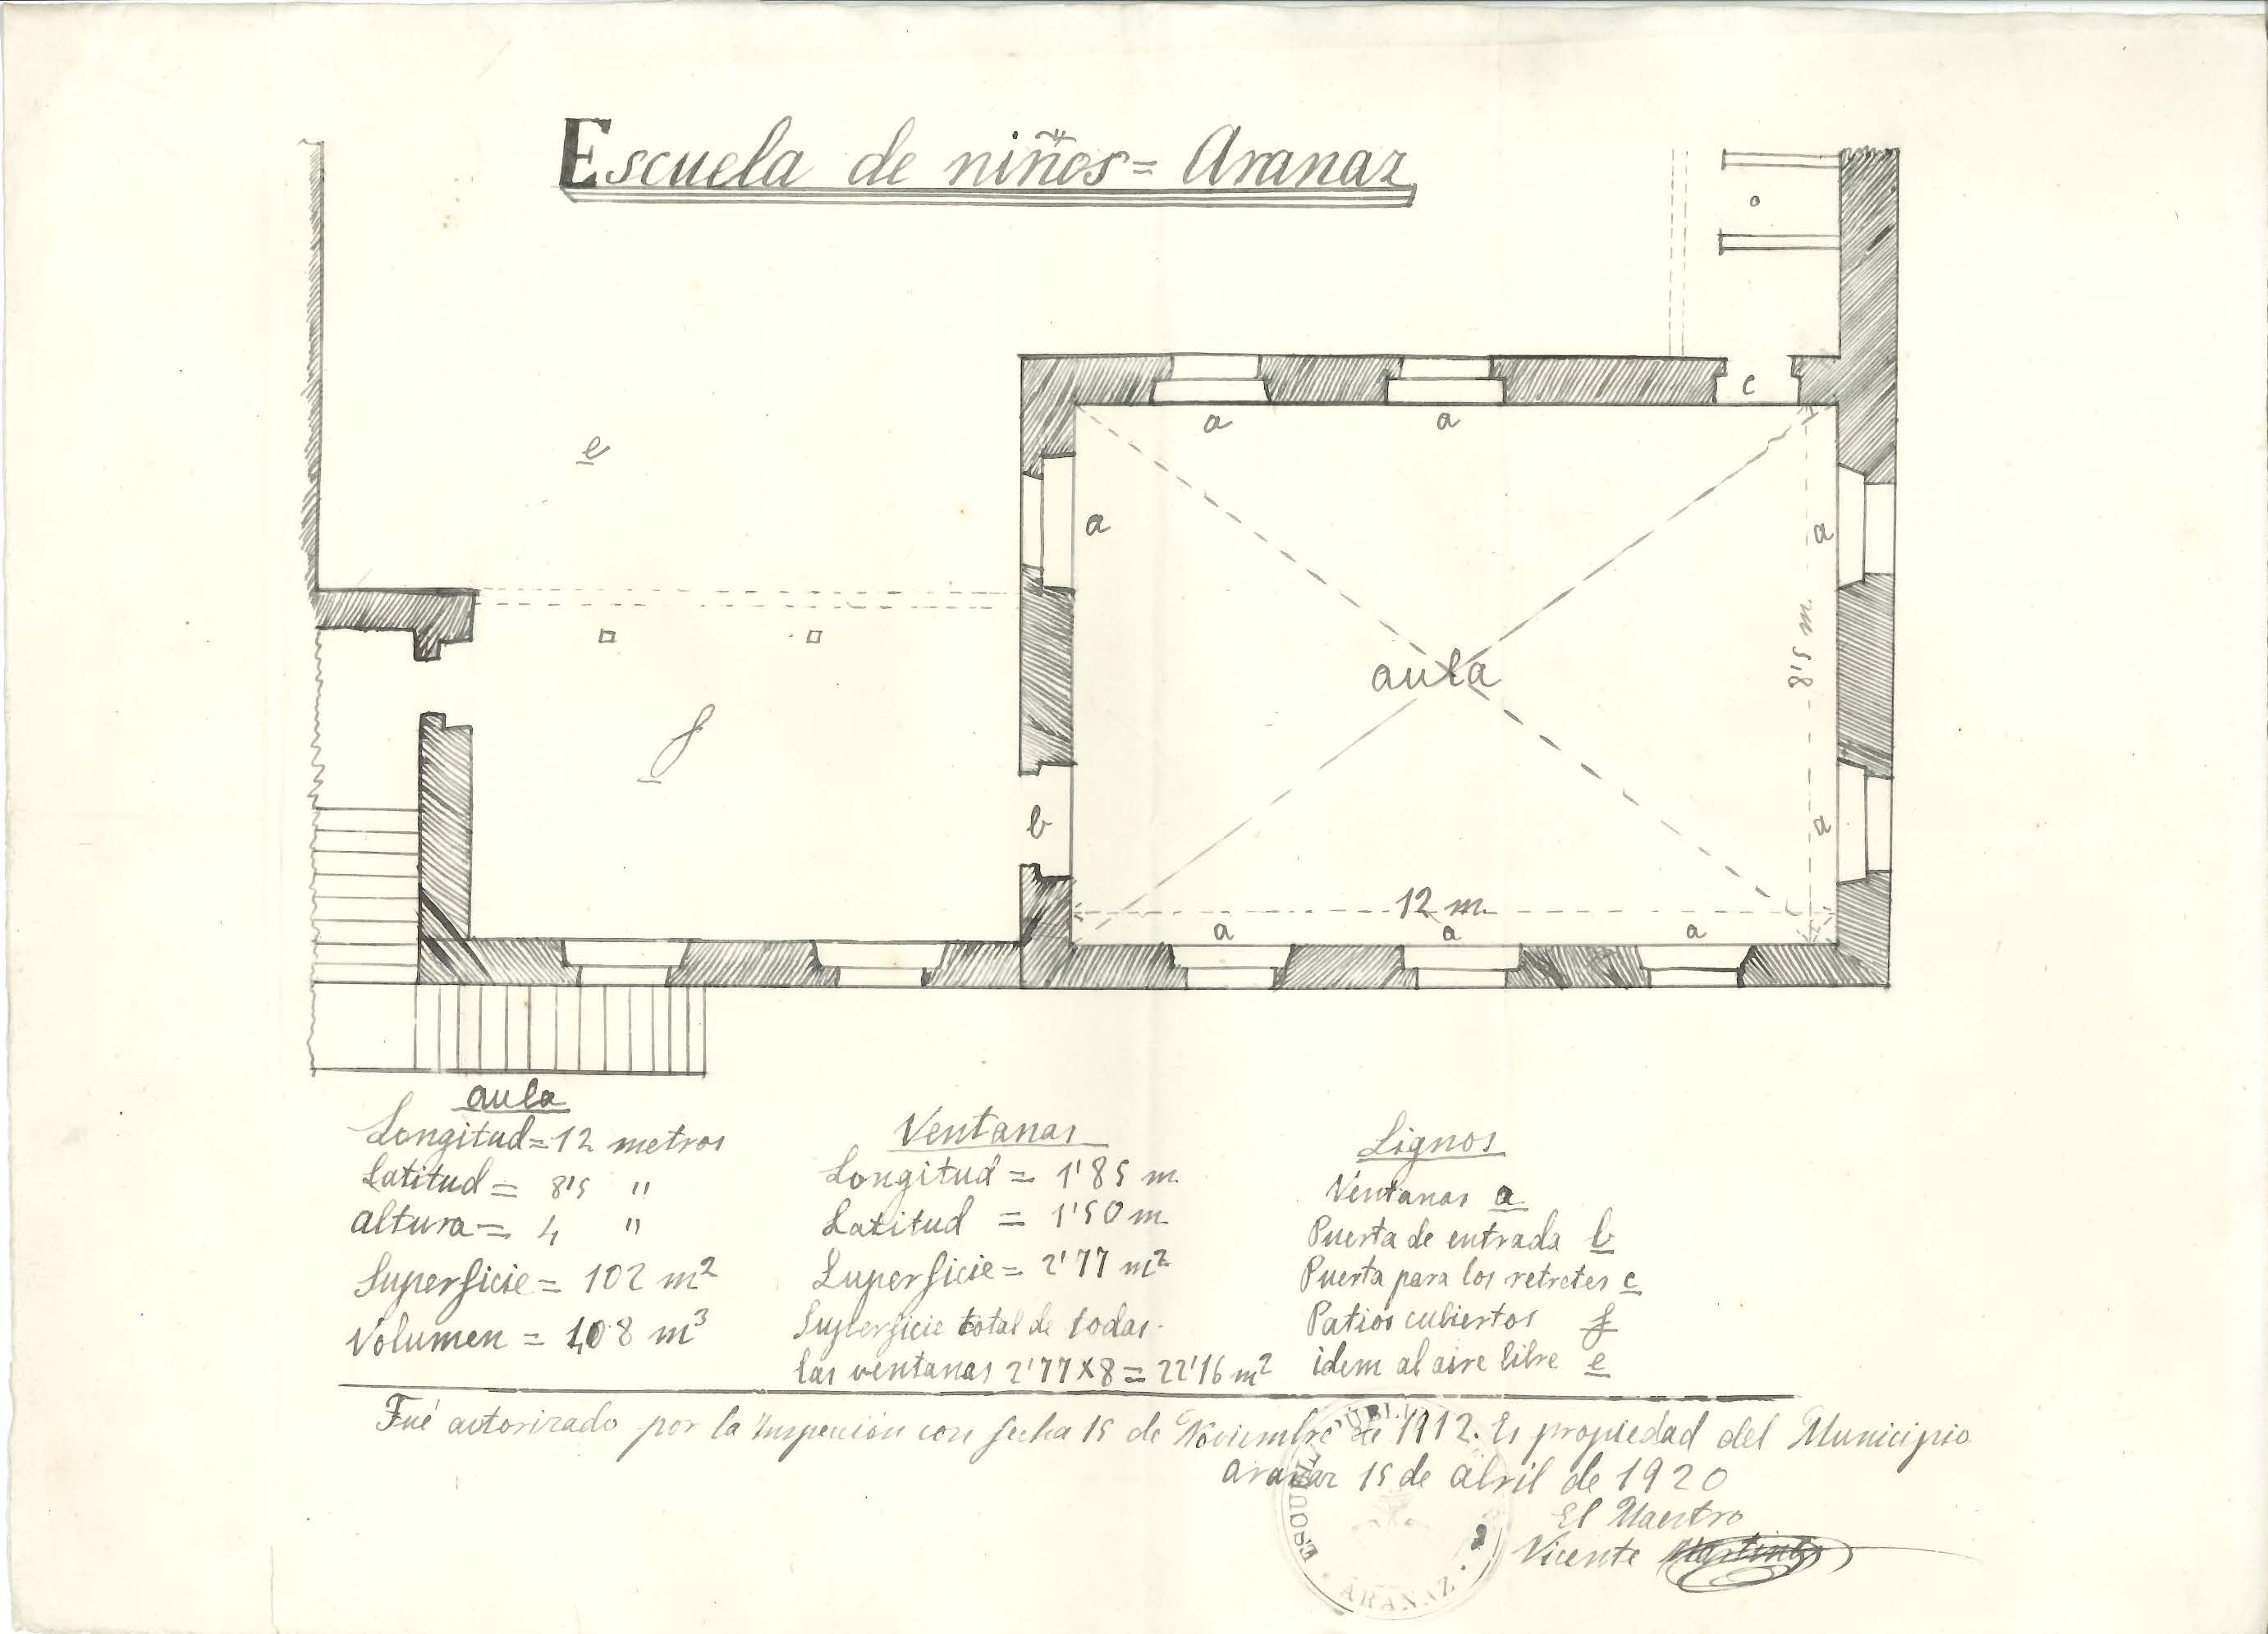 Escuela de niños = Aranaz
o
c
a
a
e
a
a
8'5 m.
aula
f
b
a
12 m.
a
a
a
aula
Longitud = 12 metros
Latitud = 8'5 "
altura = 4 "
Superficie = 102 m²
Volumen = 408 m³
Ventanas
Longitud = 1'85 m.
Latitud = 1'50 m.
Superficie = 2'77 m²
Superficie total de todas
las ventanas 2'77 x 8 = 22'16 m²
Signos
Ventanas a
Puerta de entrada b
Puerta para los retretes c
Patios cubiertos f
idem al aire libre e
Fué autorizado por la Inspección con fecha 15 de Noviembre de 1912. Es propiedad del Municipio
Aranaz 15 de abril de 1920
El Maestro
Vicente
ARANAZ